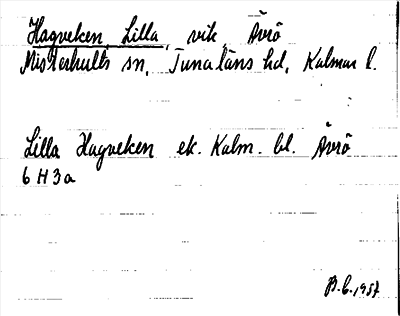 Hagveken, Lilla, vik, Ävrö
Misterhults sn, Tunaläns hd, Kalmar l.
Lilla Hagveken ek. Kalm. bl. Ävrö
6 H 3 a
B.C. 1957